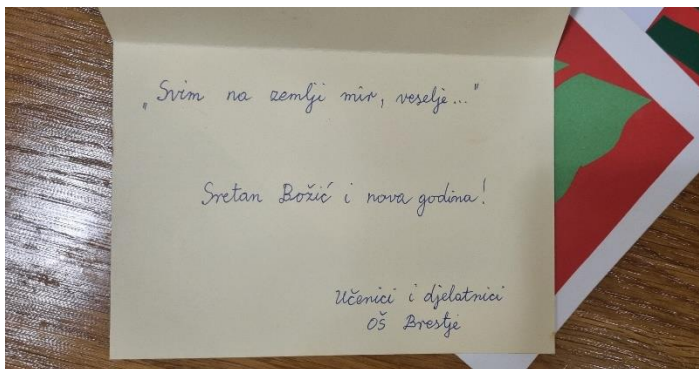 „Svim na zemlji mir, veselje..."
Sretan Božić i nova godina!
Učenici i djelatnici
OŠ Brestje